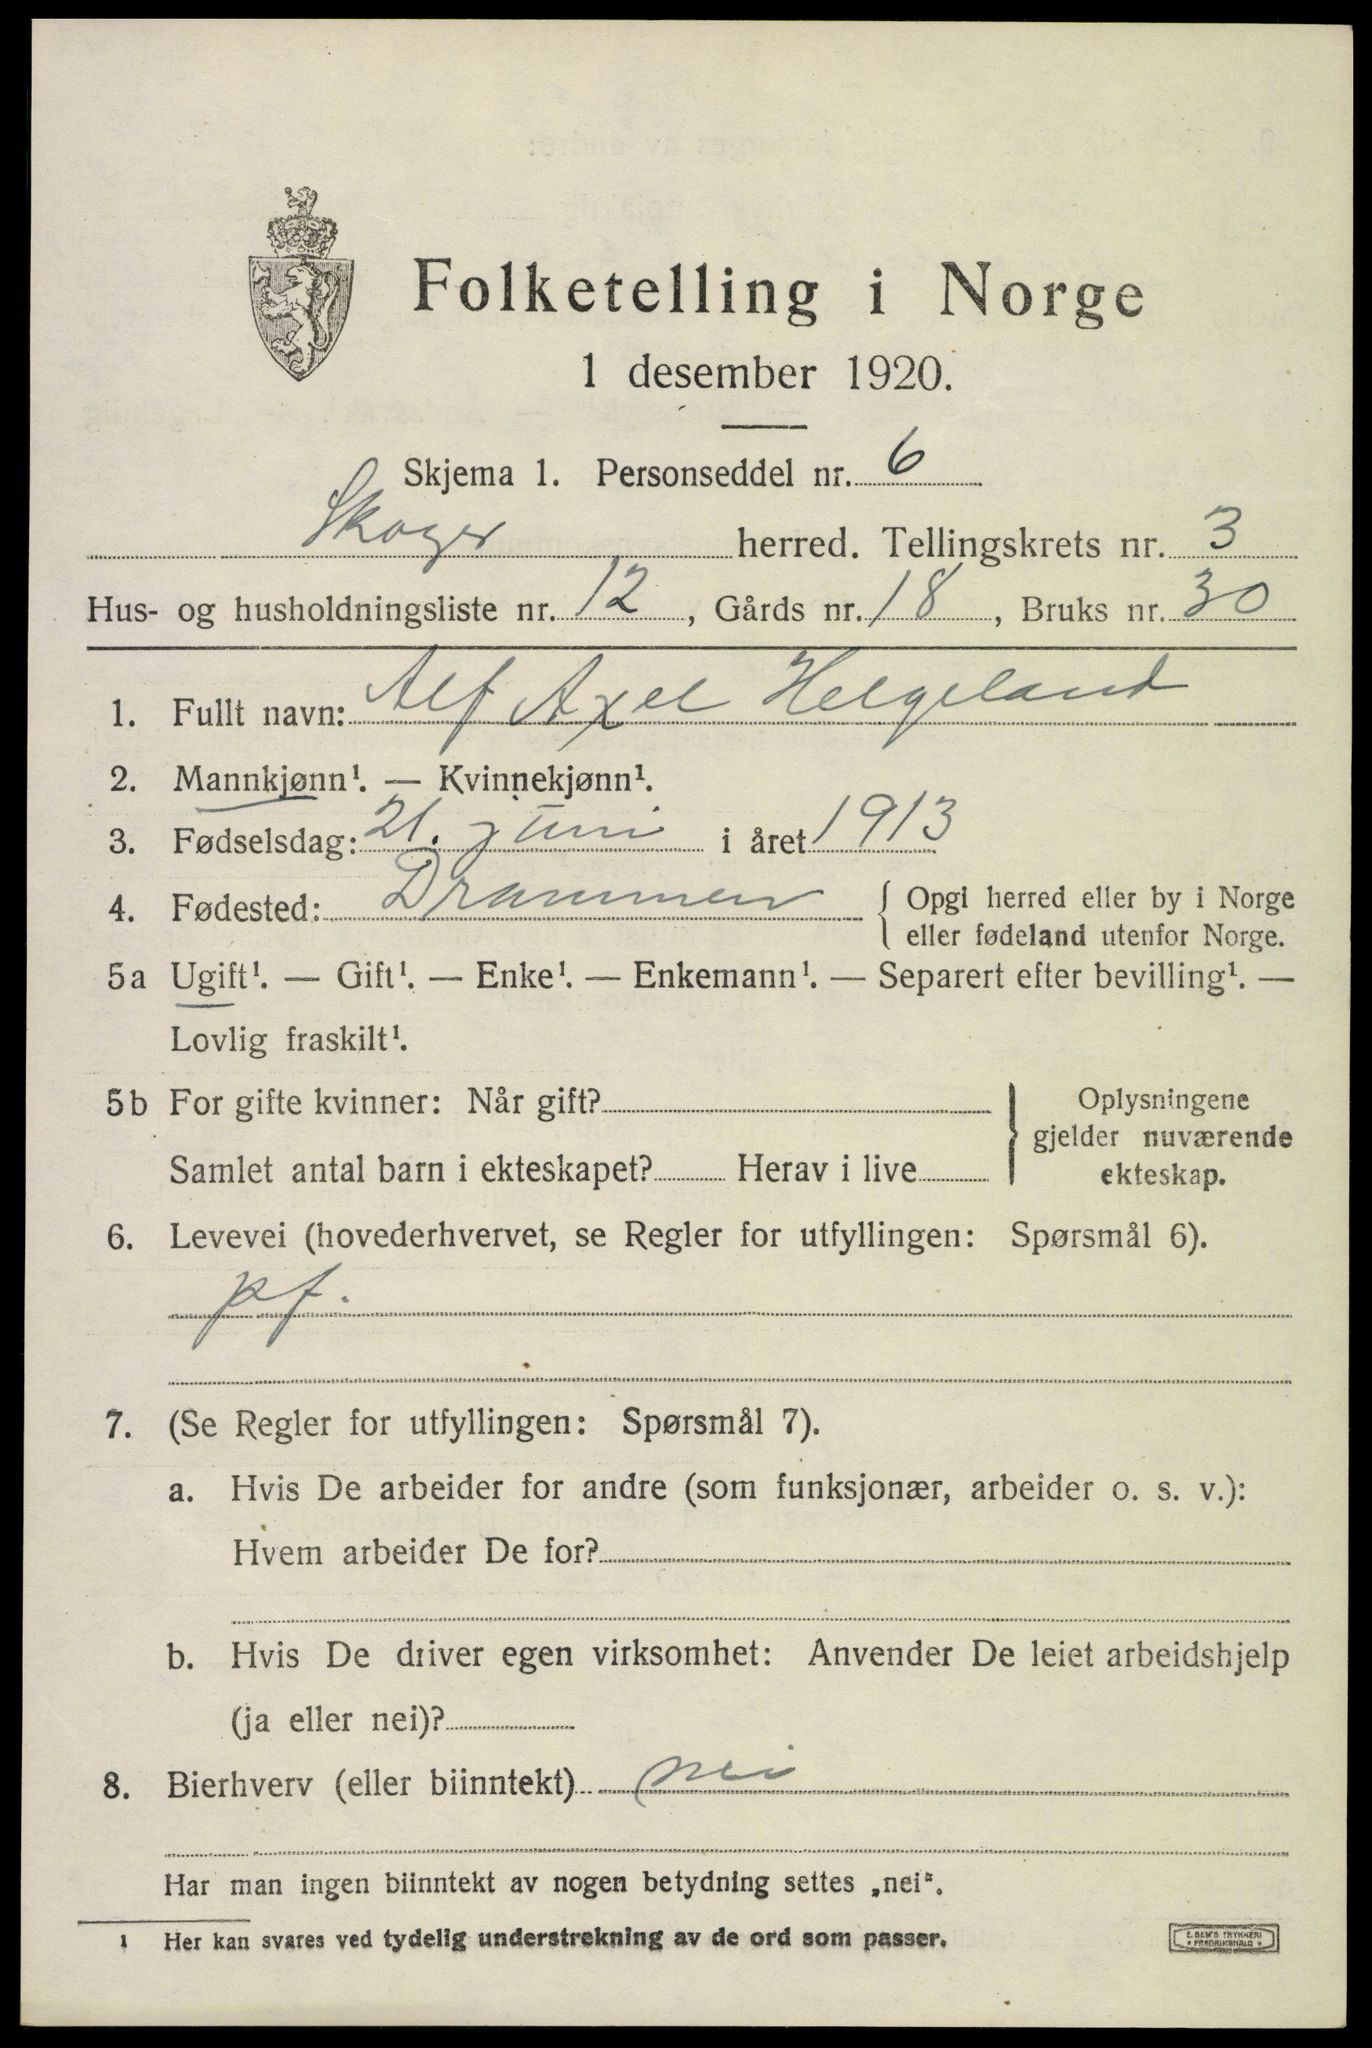 Folketelling i Norge
1 desember 1920.
Skjema 1. Personseddel nr. 6
Skoger herred. Tellingskrets nr. 3
Hus- og husholdningsliste nr. 12, Gårds nr. 18, Bruks nr. 30
1. Fullt navn: Alf Axel Helgeland
2. Mannkjønn¹. — Kvinnekjønn¹.
3. Fødselsdag: 21. juni i året 1913
4. Fødested: Drammen { Opgi herred eller by i Norge
eller fødeland utenfor Norge.
5a Ugift¹. — Gift¹. — Enke¹. — Enkemann¹. — Separert efter bevilling¹. —
Lovlig fraskilt¹.
5b For gifte kvinner: Når gift? } Oplysningene
gjelder nuværende
Samlet antal barn i ekteskapet? Herav i live ekteskap.
6. Levevei (hovederhvervet, se Regler for utfyllingen: Spørsmål 6).
pf.
7. (Se Regler for utfyllingen: Spørsmål 7).
a. Hvis De arbeider for andre (som funksjonær, arbeider o. s. v.):
Hvem arbeider De for?
b. Hvis De driver egen virksomhet: Anvender De leiet arbeidshjelp
(ja eller nei)?
8. Bierhverv (eller biinntekt) nei
Har man ingen biinntekt av nogen betydning settes „nei".
1 Her kan svares ved tydelig understrekning av de ord som passer.
E. SEM'S TRYKKERI
* FREDRIKSHALD *